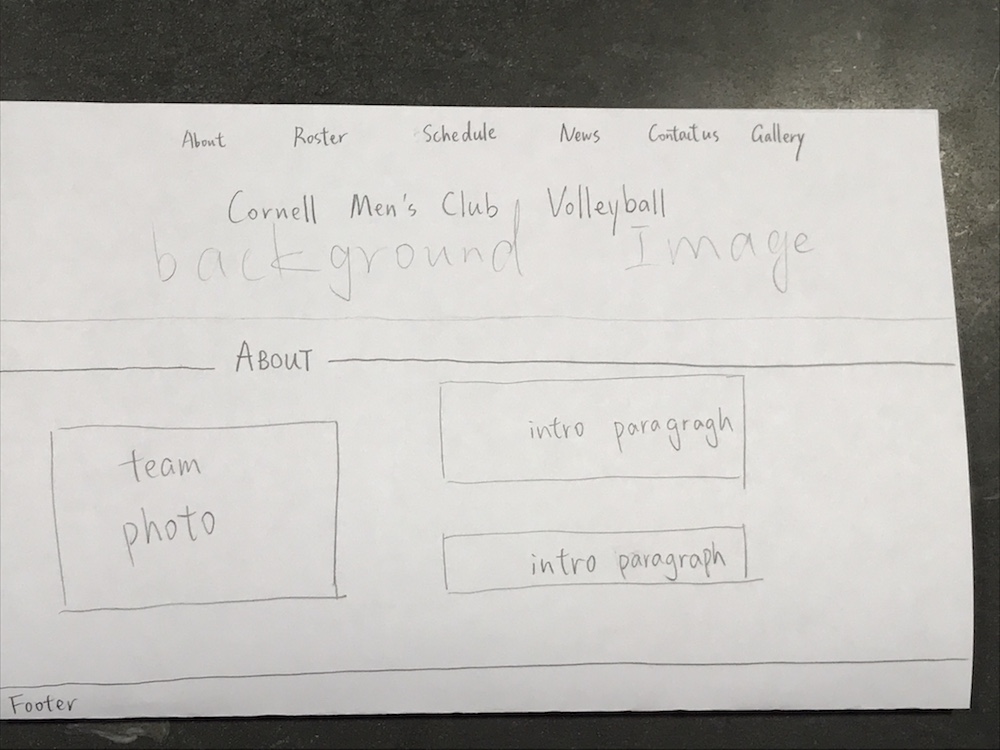 About Roster Schedule News Contact us Gallery
Cornell Men's Club Volleyball
background Image
ABOUT
team
photo
intro paragragh
intro paragraph
Footer